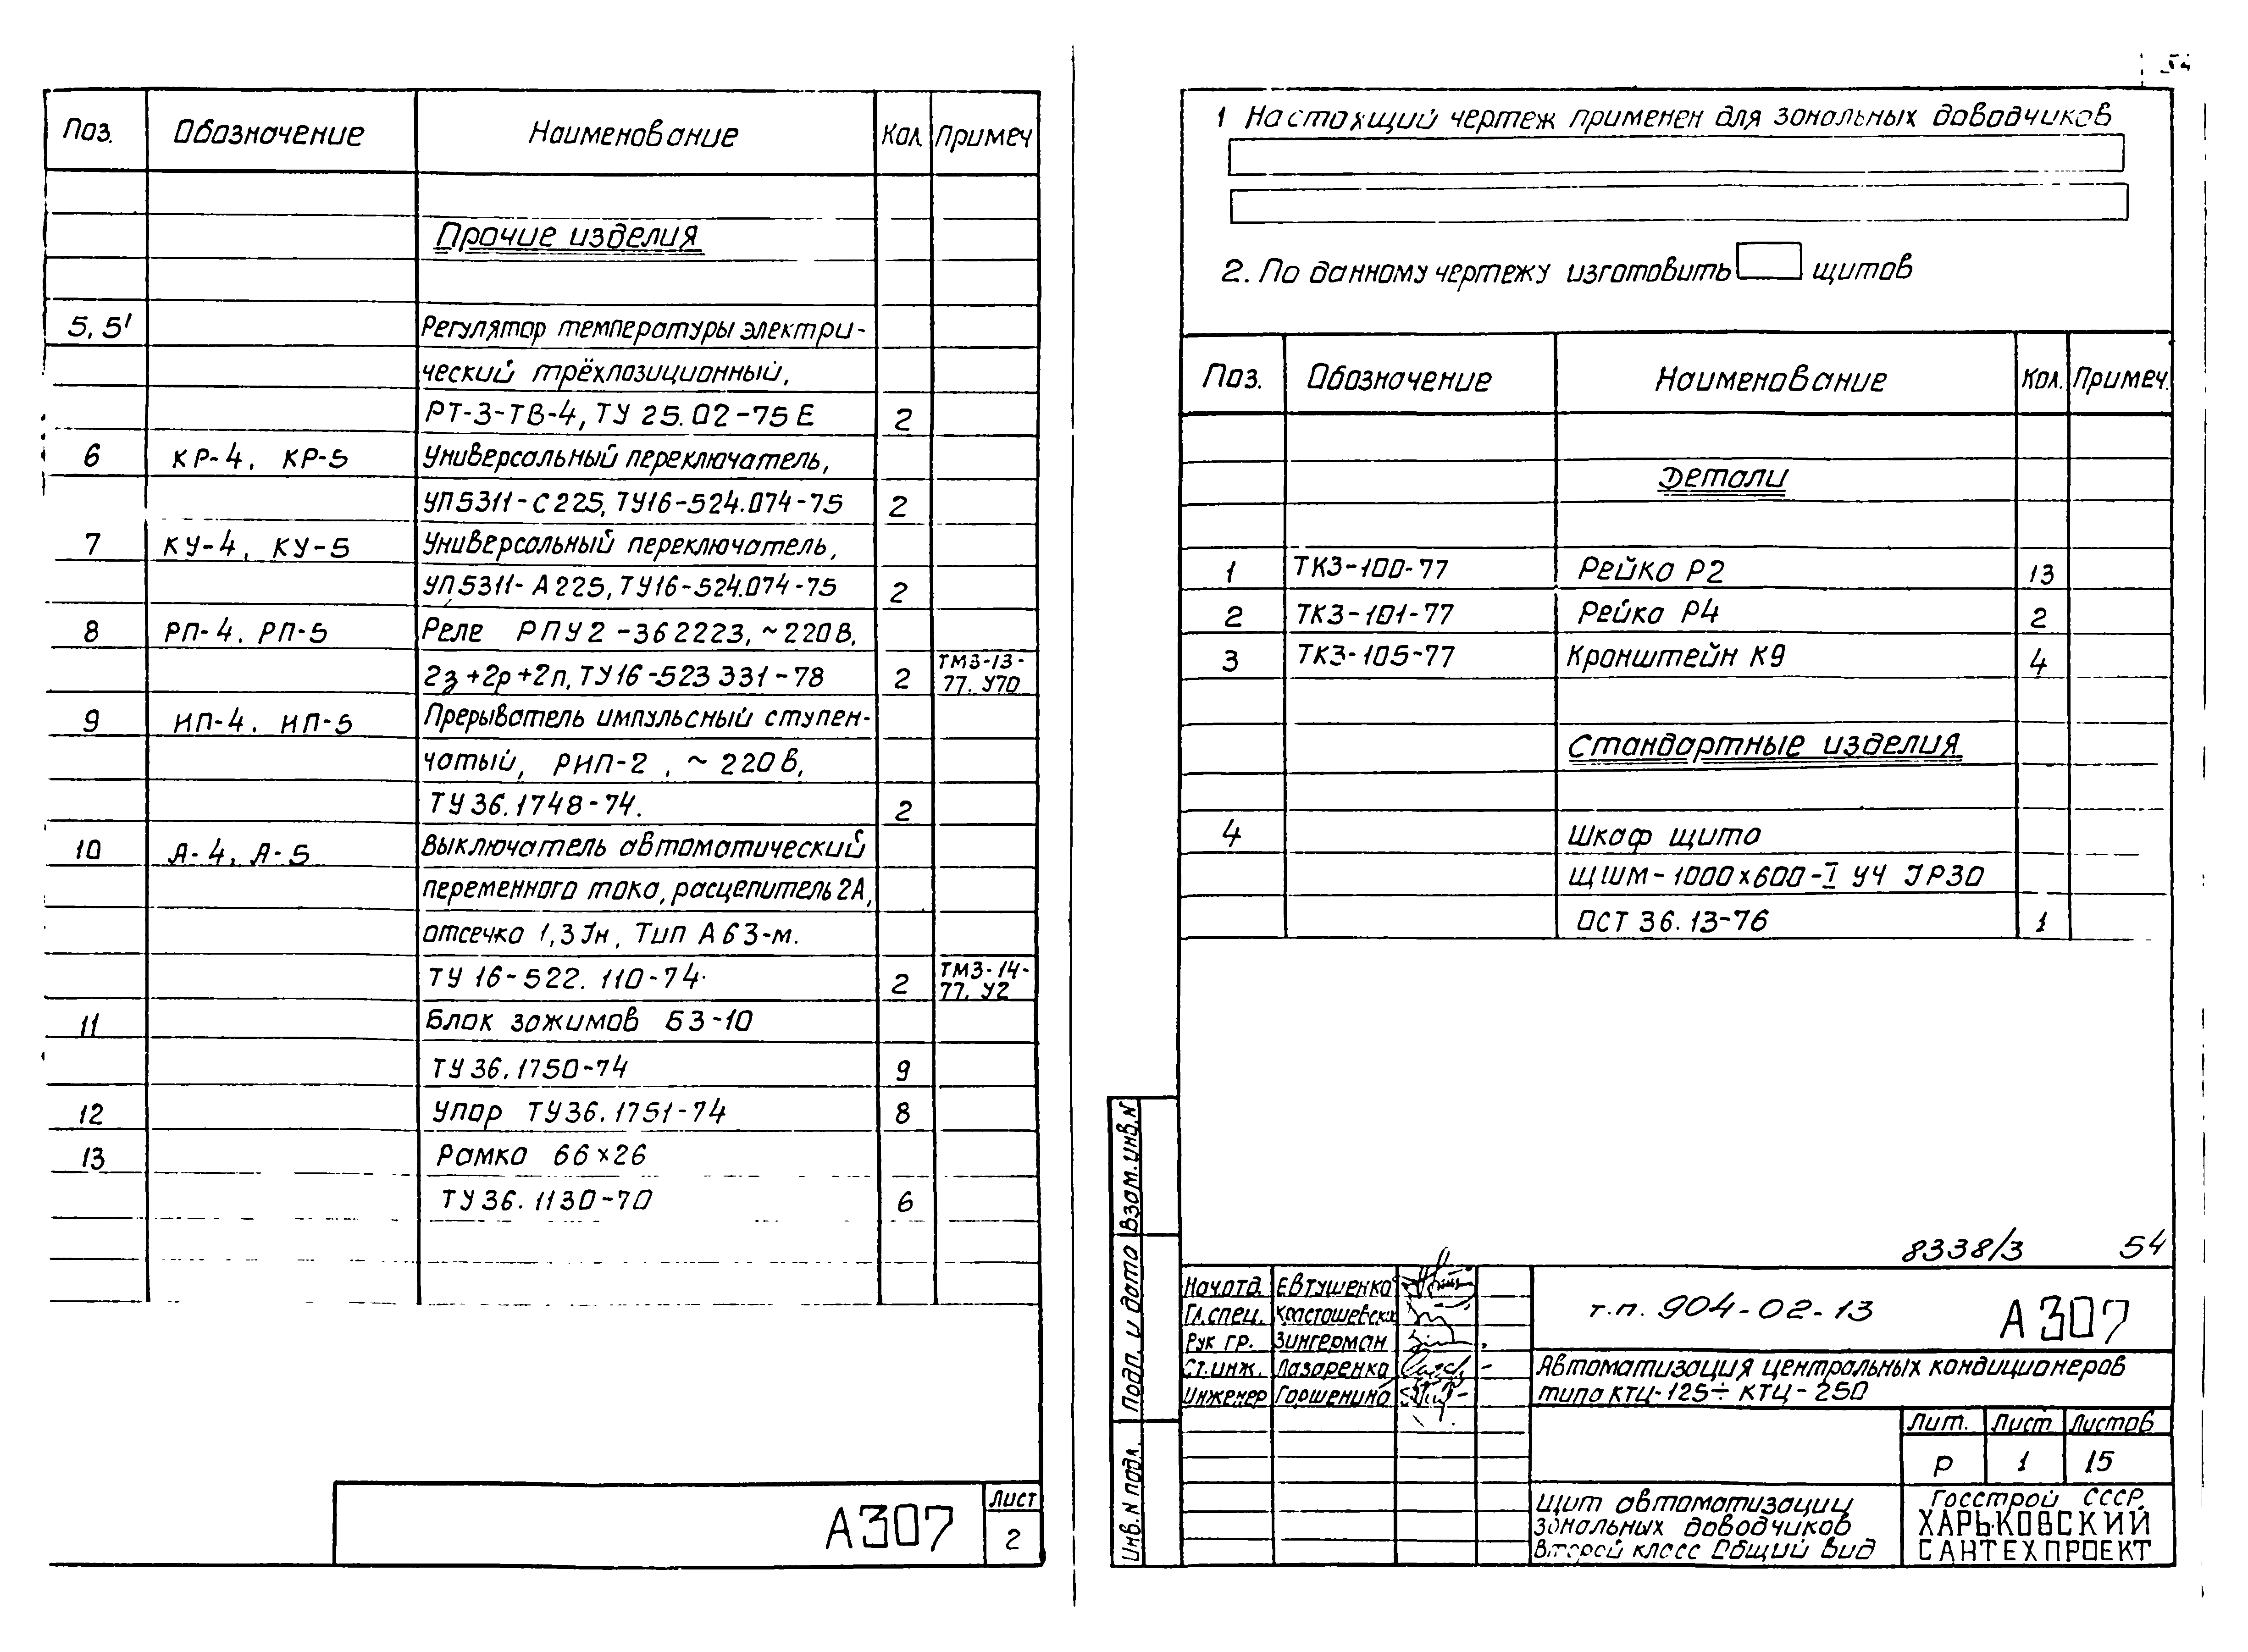 Поз. Обозначение Наименование Кол Примеч
Прочие изделия
5, 5' Регулятор температуры электри-
ческий трёхпозиционный,
РТ-3-ТВ-4, ТУ 25.02-75 Е 2
6 КР-4, КР-5 Универсальный переключатель,
УП5311-С225, ТУ16-524.074-75 2
7 КУ-4, КУ-5 Универсальный переключатель,
УП5311-А225, ТУ16-524.074-75 2
8 РП-4, РП-5 Реле РПУ2-362223, ~220В,
2з+2р+2п, ТУ16-523 331-78 2 ТМ3-13-
77. У70
9 ИП-4, ИП-5 Прерыватель импульсный ступен-
чатый, РИП-2, ~220В,
ТУ 36.1748-74. 2
10 А-4, А-5 Выключатель автоматический
переменного тока, расцепитель 2А,
отсечка 1,3 Iн, Тип А63-м.
ТУ 16-522. 110-74. 2 ТМ3-14-
77. У2
11 Блок зажимов БЗ-10
ТУ 36.1750-74 9
12 Упор ТУ36.1751-74 8
13 Рамка 66×26
ТУ 36.1130-70 6
А307
Лист
2
54
1 Настоящий чертеж применен для зональных доводчиков
2. По данному чертежу изготовить щитов
Поз. Обозначение Наименование Кол. Примеч.
Детали
1 ТК3-100-77 Рейка Р2 13
2 ТК3-101-77 Рейка Р4 2
3 ТК3-105-77 Кронштейн К9 4
Стандартные изделия
4 Шкаф щита
ЩШМ-1000×600-I У4 IP30
ОСТ 36.13-76 1
8338/3 54
Взам.инв.N
Подп. и дата
Инв. N подл.
Нач.отд. Евтушенко
Гл.спец. Красташевский
Рук гр. Зингерман
Ст.инж. Лазаренко
Инженер Горшенина
т.п. 904-02-13 А307
Автоматизация центральных кондиционеров
типа КТЦ-125÷КТЦ-250
Лит. Лист Листов
Р 1 15
Щит автоматизации
зональных доводчиков
Второй класс Общий вид
Госстрой СССР.
ХАРЬКОВСКИЙ
САНТЕХПРОЕКТ